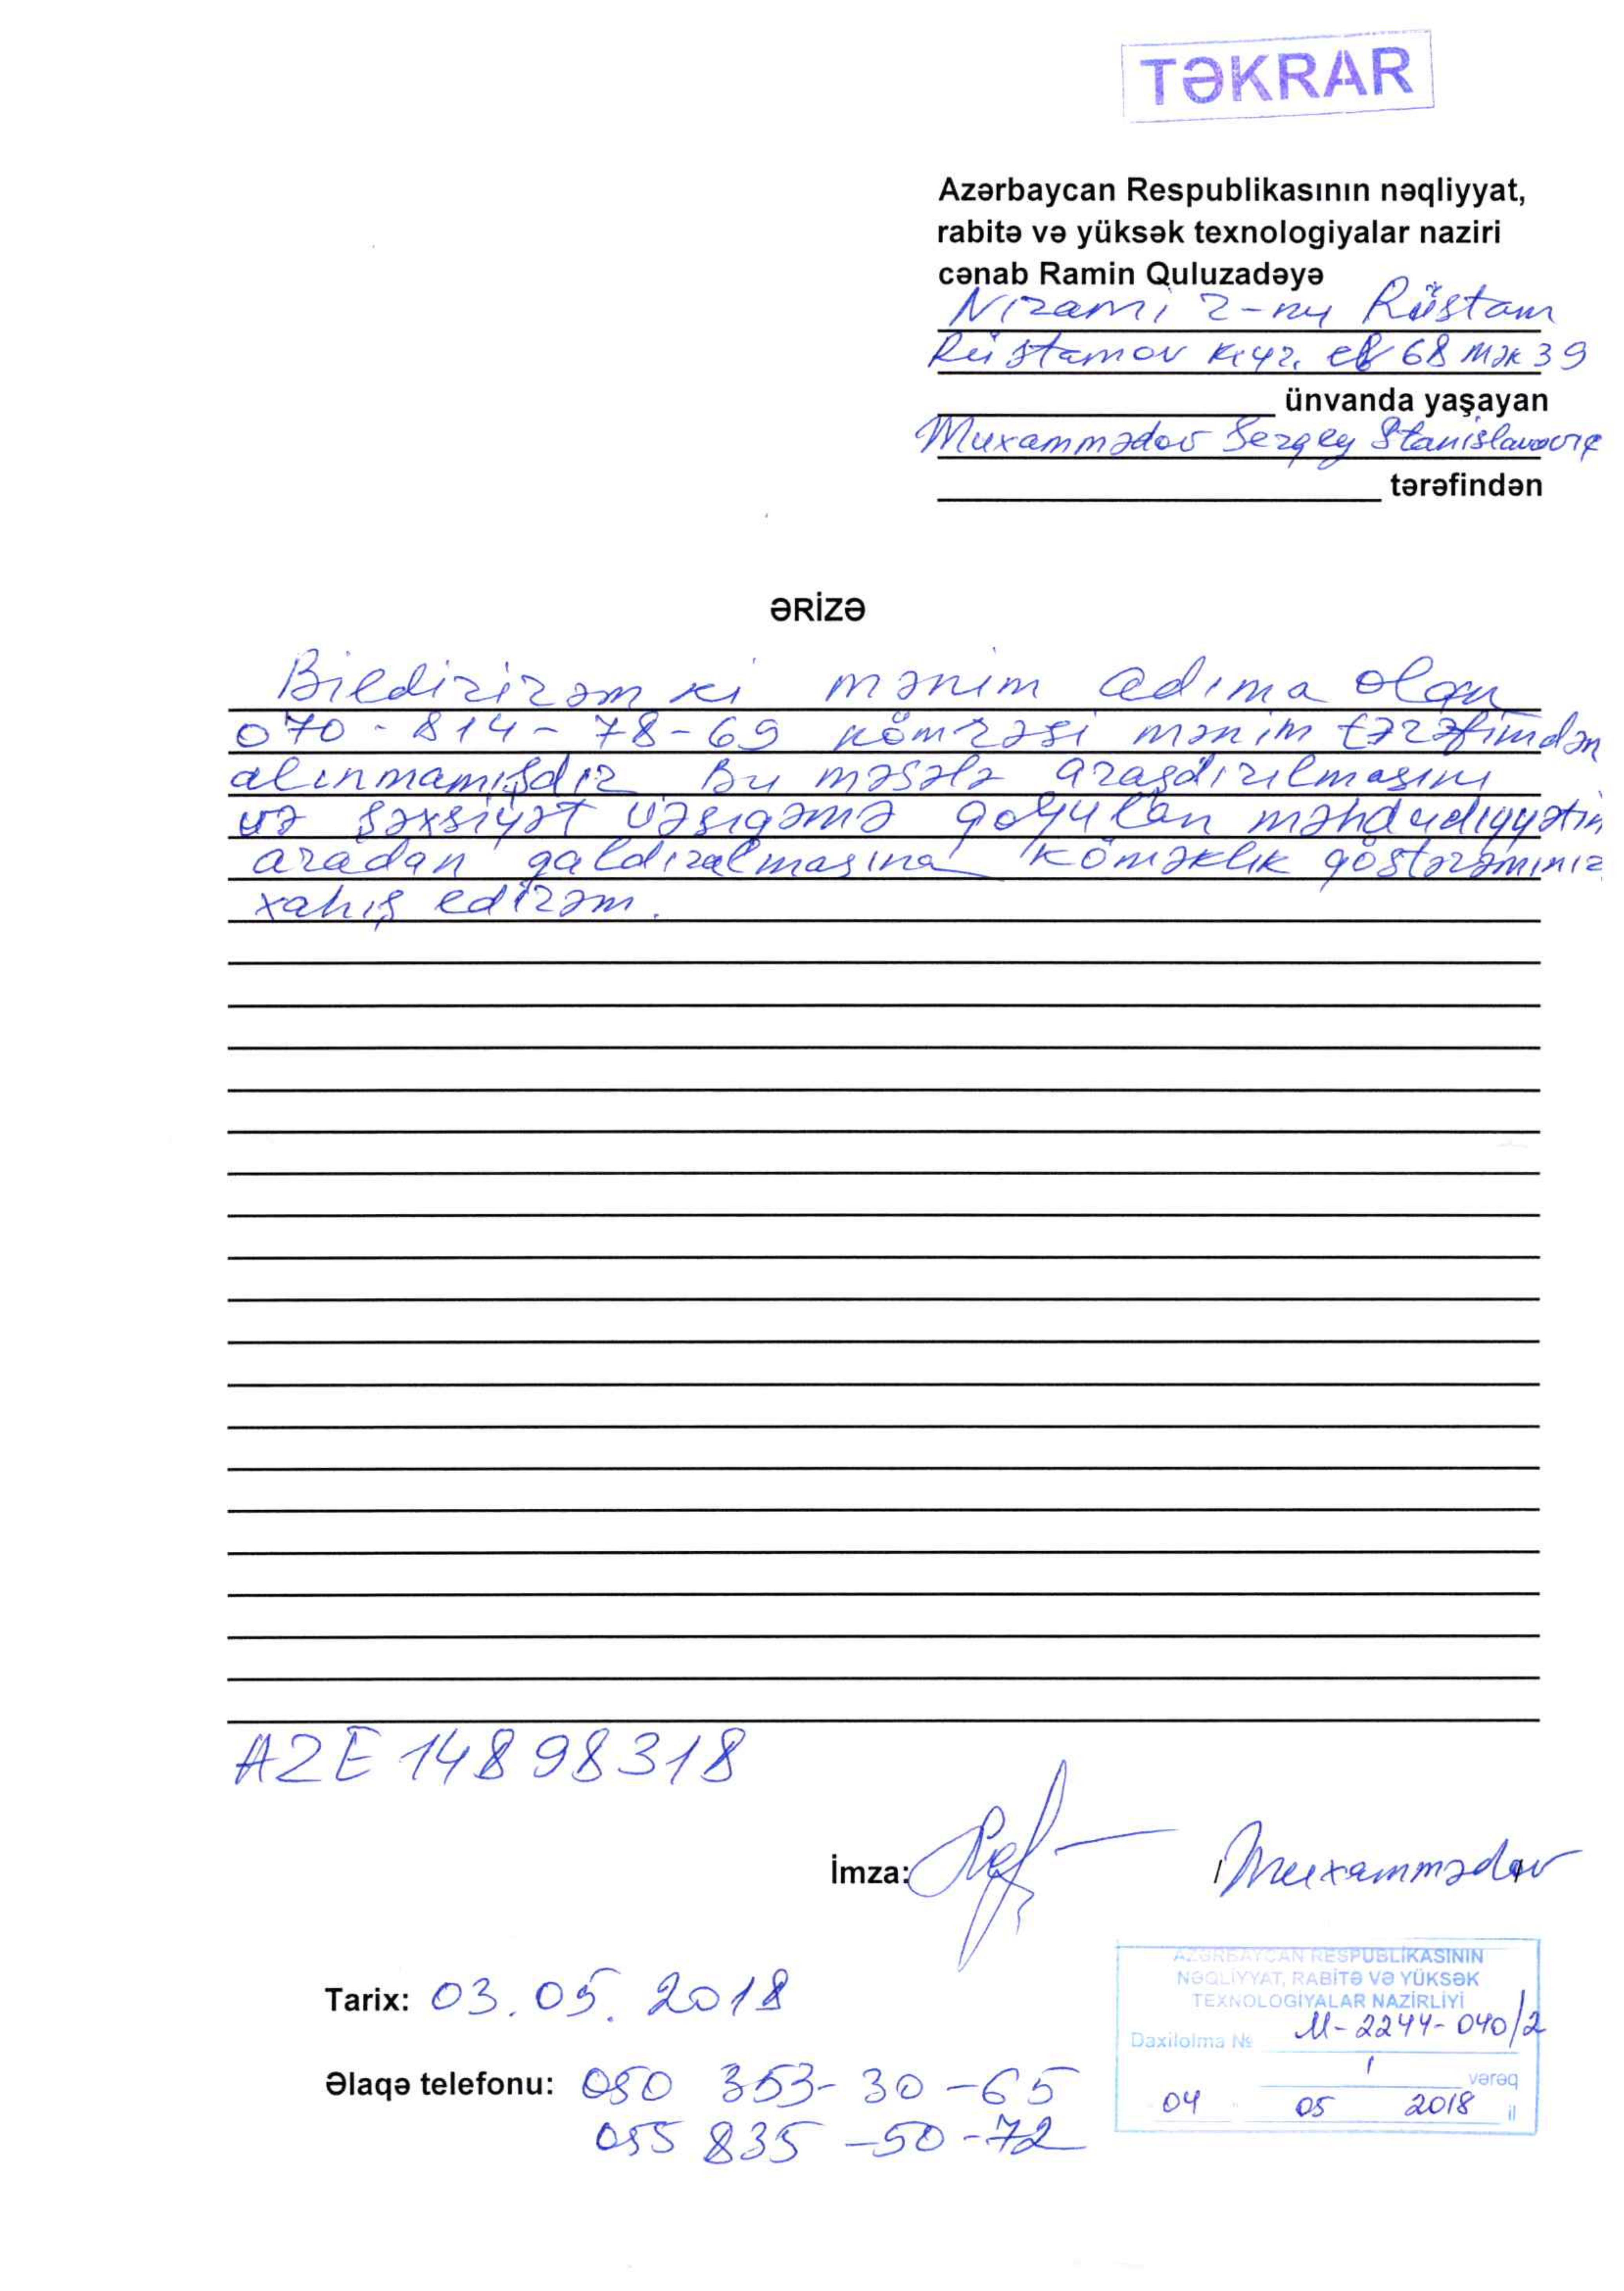 TƏKRAR
Azərbaycan Respublikasının nəqliyyat,
rabitə və yüksək texnologiyalar naziri
cənab Ramin Quluzadəyə
Nizami r-nu Rüstam
Rüstamov küç. ev 68 mən 39
ünvanda yaşayan
Muxammədov Sergey Stanislavoviç
tərəfindən
ƏRİZƏ
Bildirirəm ki mənim adıma olan
070-814-78-69 nömrəsi mənim tərəfimdən
alınmamışdır Bu məsələ araşdırılmasını
və şəxsiyət vəsigəmə qoyulan məhdudiyyətin
aradan qaldırılmasına köməklik göstərəminiz
xahiş edirəm.
AZE 14898318
İmza: / Muxammədov /
Tarix: 03.05.2018
AZƏRBAYCAN RESPUBLİKASININ
NƏQLİYYAT, RABİTƏ VƏ YÜKSƏK
TEXNOLOGİYALAR NAZİRLİYİ
Daxilolma № M-2244-040/2
1 vərəq
04 05 2018 il
Əlaqə telefonu: 050 353-30-65
055 835-50-72